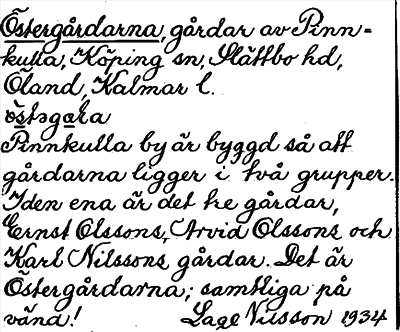 Östergårdarna, gårdar av Pinn-
kulla, Köping sn, Slättbo hd,
Öland, Kalmar l.
östəgaɽa
Pinnkulla by är byggd så att
gårdarna ligger i två grupper.
I den ena är det tre gårdar,
Ernst Olssons, Arvid Olssons och
Karl Nilssons gårdar. Det är
Östergårdarna; samtliga på
vänd! Lage Nilsson 1934